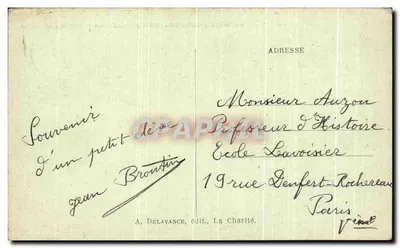 ADRESSE
Souvenir
d'un petit élève
Jean Broutin
Monsieur Auzon
Professeur d'Histoire
Ecole Lavoisier
19 rue Denfert-Rochereau
Paris
A. DELAYANCE, édit., La Charité.